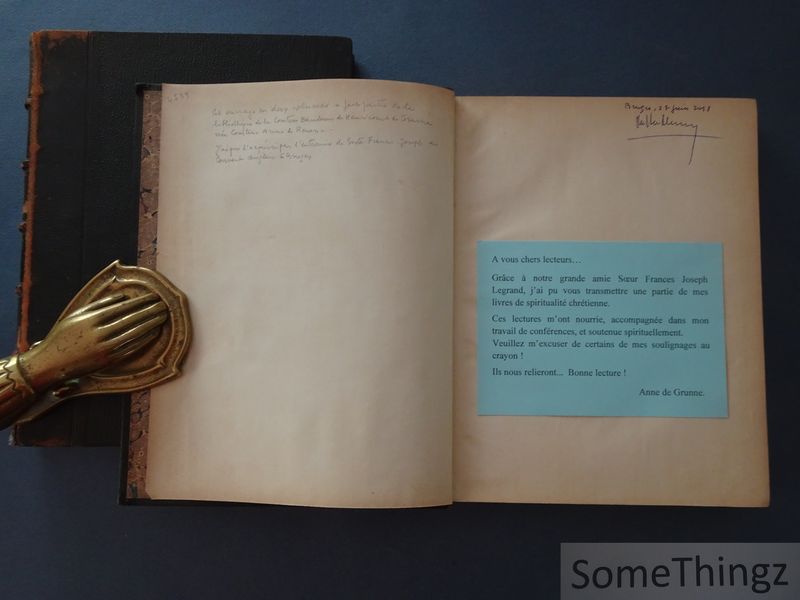 4539
Cet ouvrage en deux volumes a fait partie de la
bibliothèque de la Comtesse Baudouin de Hemricourt de Grunne
née Comtesse Anne de
J'ai pu l'acquérir par l'entremise de Sœur Frances Joseph du
couvent anglais à Bruges
Bruges, 27 juin 2018
A vous chers lecteurs…
Grâce à notre grande amie Sœur Frances Joseph
Legrand, j'ai pu vous transmettre une partie de mes
livres de spiritualité chrétienne.
Ces lectures m'ont nourrie, accompagnée dans mon
travail de conférences, et soutenue spirituellement.
Veuillez m'excuser de certains de mes soulignages au
crayon !
Ils nous relieront... Bonne lecture !
Anne de Grunne.
SomeThingz